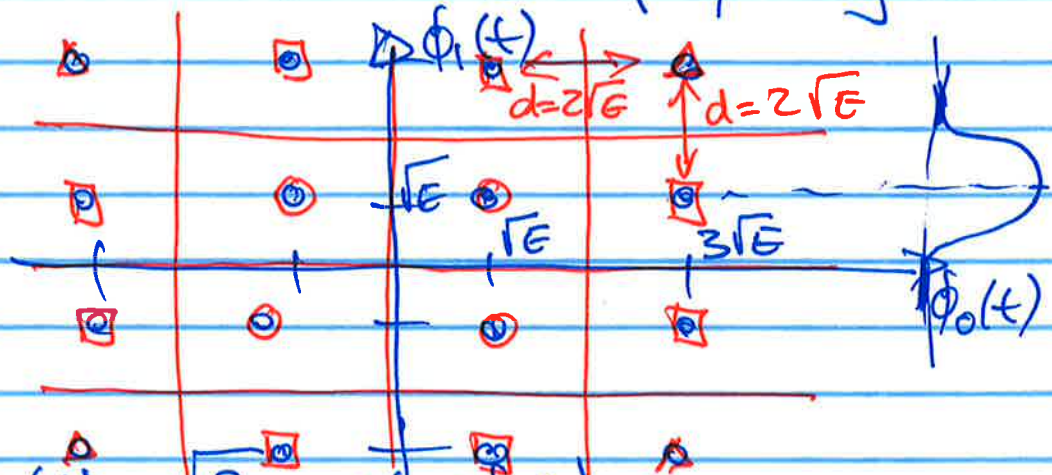 ϕ₁(t)
d=2√E d=2√E
√E
√E 3√E
ϕ₀(t)